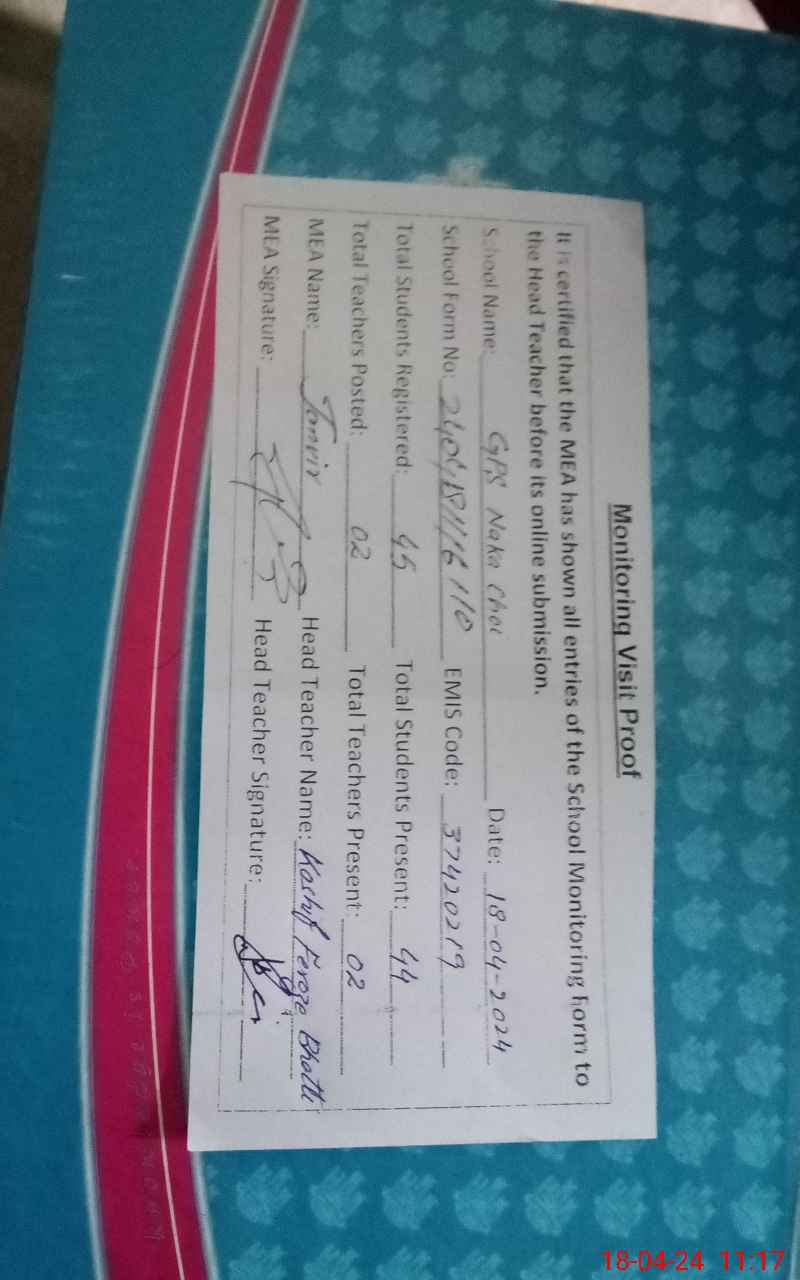 Monitoring Visit Proof
It is certified that the MEA has shown all entries of the School Monitoring Form to
the Head Teacher before its online submission.
School Name: GPS Naka Choi Date: 18-04-2024
School Form No: 2404181116110 EMIS Code: 37420219
Total Students Registered: 45 Total Students Present: 44
Total Teachers Posted: 02 Total Teachers Present: 02
MEA Name: Tanvir Head Teacher Name: Kashif Feroze Bhatti
MEA Signature: Head Teacher Signature:
18-04-24 11:17